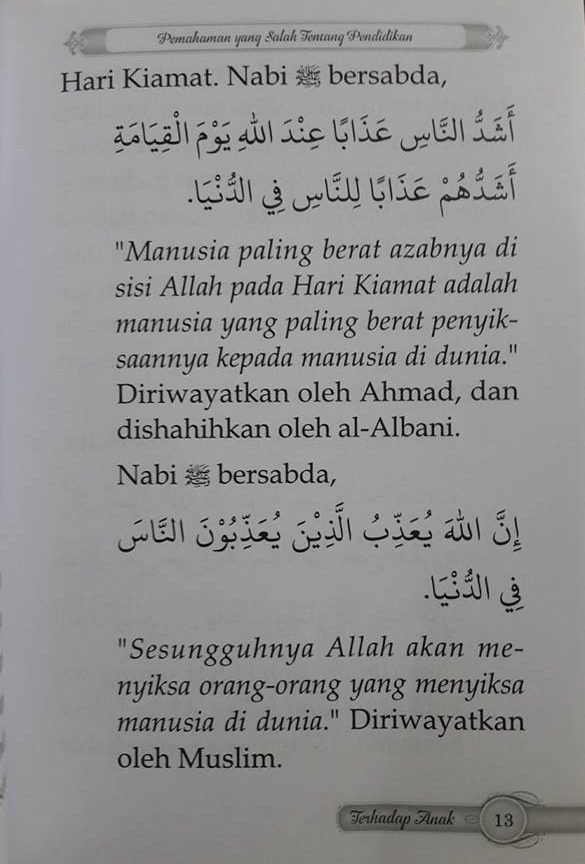 Pemahaman yang Salah Tentang Pendidikan
Hari Kiamat. Nabi ﷺ bersabda,
أَشَدُّ النَّاسِ عَذَابًا عِنْدَ اللهِ يَوْمَ الْقِيَامَةِ
أَشَدُّهُمْ عَذَابًا لِلنَّاسِ فِي الدُّنْيَا.
"Manusia paling berat azabnya di
sisi Allah pada Hari Kiamat adalah
manusia yang paling berat penyik-
saannya kepada manusia di dunia."
Diriwayatkan oleh Ahmad, dan
dishahihkan oleh al-Albani.
Nabi ﷺ bersabda,
إِنَّ اللهَ يُعَذِّبُ الَّذِيْنَ يُعَذِّبُوْنَ النَّاسَ
فِي الدُّنْيَا.
"Sesungguhnya Allah akan me-
nyiksa orang-orang yang menyiksa
manusia di dunia." Diriwayatkan
oleh Muslim.
Terhadap Anak 13